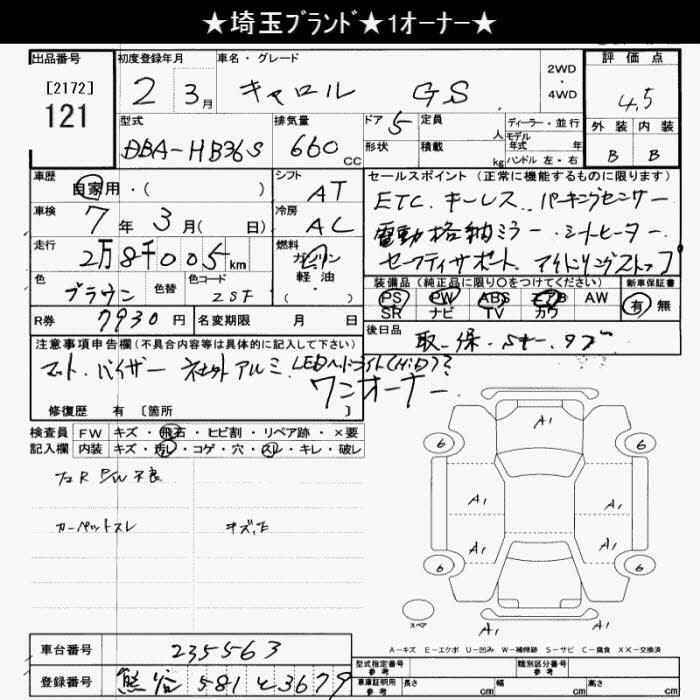 ★埼玉ブランド★1オーナー★
出品番号
[2172]
121
初度登録年月
2 3月
車名・グレード
キャロル GS
2WD
・
4WD
評価点
4.5
外装 内装
B B
型式
DBA-HB36S
排気量
660 CC
ドア 5
形状
定員 人
積載 kg
ディーラー・並行
モデル
年式 年
ハンドル 左・右
車歴
自家用・( )
シフト
AT
車検
7年 3月( 日)
冷房
AC
走行
2万8千005km
燃料
ガソリン
軽油
・( )
色
ブラウン
色替
色コード
ZSF
R券 7930円
名変期限 月 日
セールスポイント (正常に機能するものに限ります)
ETC. キーレス. パーキングセンサー
電動格納ミラー・シートヒーター
セーフティサポート アイドリングストップ
装備品 (純正品に限り○をつけてください)
PS PW ABS エアB AW
SR ナビ TV カワ
新車保証書
有 無
後日品
取.保.
注意事項申告欄 (不具合内容等は具体的に記入して下さい)
マット. バイザー アルミ LEDヘッドライト(HID)?
ワンオーナー.
修復歴 有 [箇所 ]
検査員
記入欄
FW キズ・飛石・ヒビ割・リペア跡・×要
内装 キズ・汚レ・コゲ・穴・スレ・キレ・破レ
P/W不良
カーペットスレ
A1
6 6
A1 A1
A1 A1
6 6
A1
スペア
A-キズ E-エクボ U-凹み W-補修跡 S-サビ C-腐食 XX-交換済
車台番号 235563
登録番号 熊谷 581 と 3679
型式指定番号
参考
類別区分番号
参考
車庫証明用
参考
長さ cm 幅 cm 高さ cm